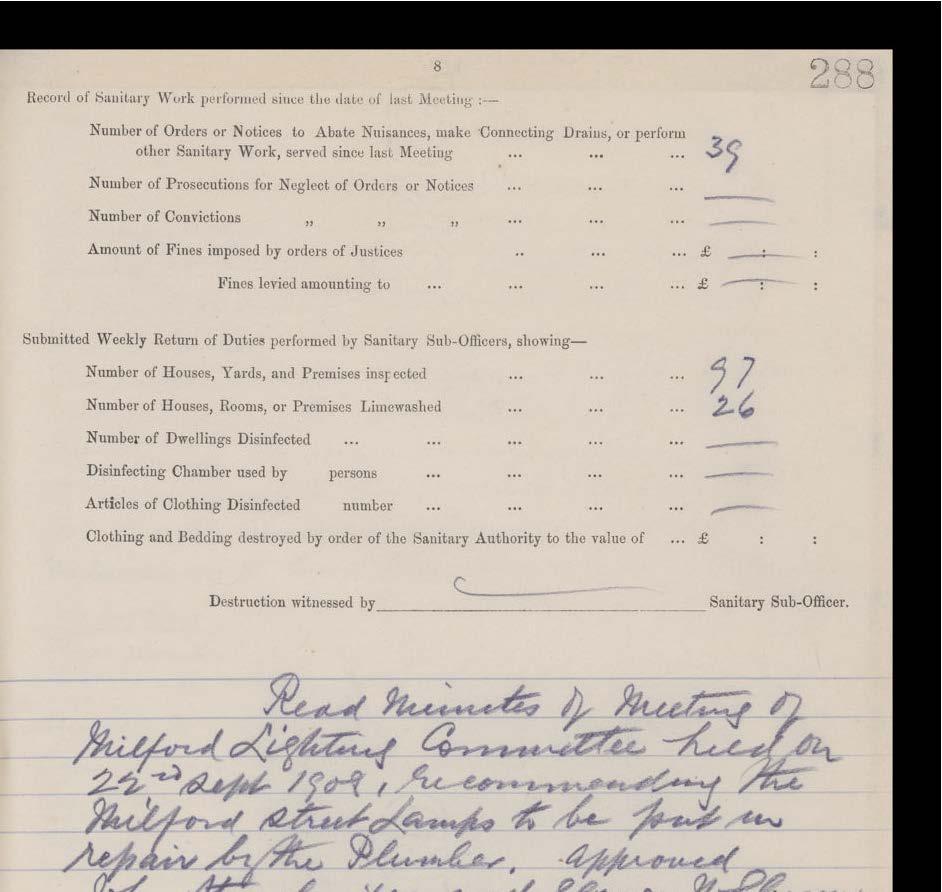 8
288
Record of Sanitary Work performed since the date of last Meeting :—
Number of Orders or Notices to Abate Nuisances, make Connecting Drains, or perform
other Sanitary Work, served since last Meeting ... ... ... 39
Number of Prosecutions for Neglect of Orders or Notices ... ... ... —
Number of Convictions „ „ „ ... ... ... —
Amount of Fines imposed by orders of Justices .. ... ... £ — : :
Fines levied amounting to ... ... ... ... £ — : :
Submitted Weekly Return of Duties performed by Sanitary Sub-Officers, showing—
Number of Houses, Yards, and Premises inspected ... ... ... 97
Number of Houses, Rooms, or Premises Limewashed ... ... ... 26
Number of Dwellings Disinfected ... ... ... ... ... —
Disinfecting Chamber used by persons ... ... ... ... —
Articles of Clothing Disinfected number ... ... ... ... —
Clothing and Bedding destroyed by order of the Sanitary Authority to the value of ... £ : :
Destruction witnessed by Sanitary Sub-Officer.
Read Minutes of Meeting of
Milford Lighting Committee held on
22nd Sept 1909, recommending the
Milford street Lamps to be put in
repair by the Plumber. Approved